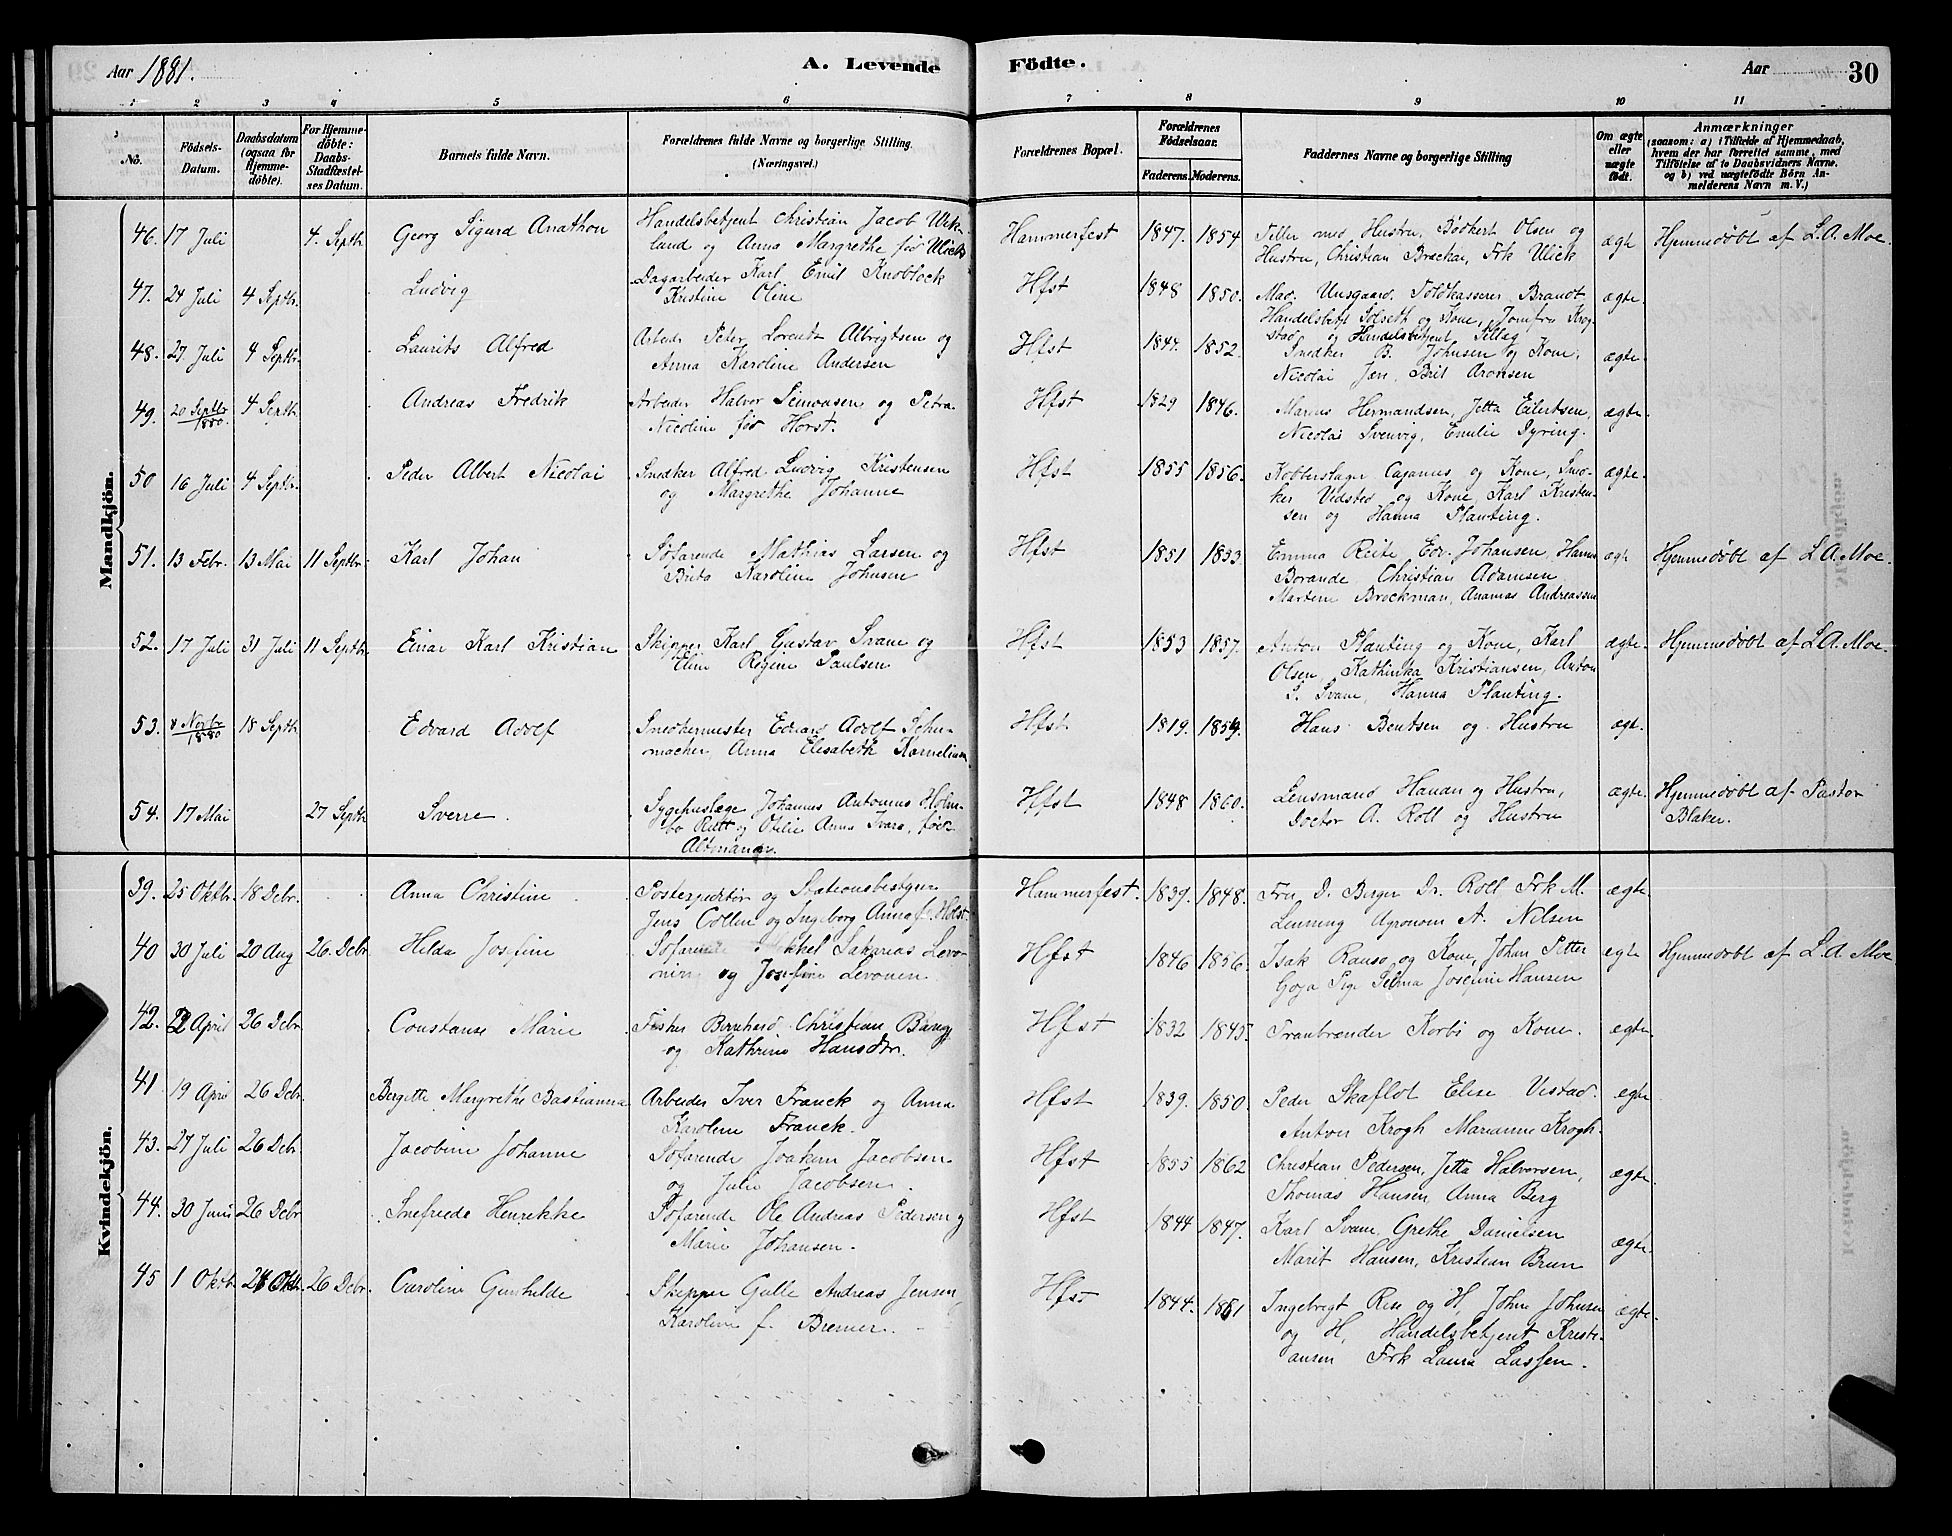 Aar 1881.
A. Levende
Födte.
Aar
30
1 2 3 4 5 6 7 8 9 10 11
No.
Födsels-Datum.
Daabsdatum (ogsaa for Hjemmedöbte).
For Hjemmedöbte: Daabs-Stadfæstelses Datum.
Barnets fulde Navn.
Forældrenes fulde Navne og borgerlige Stilling. (Næringsvei.)
Forældrenes Bopæl.
Forældrenes Födselsaar.
Faderens. Moderens.
Faddernes Navne og borgerlige Stilling
Om ægte eller uægte födt.
Anmærkninger
(saasom: a) i Tilfælde af Hjemmedaab, hvem der har forrettet samme, med Tilföielse af to Daabsvidners Navne, og b) ved uægtefödte Börn Anmelderens Navn m. V.)
Mandkjön.
46. 17 Juli 4. Septb. Georg Sigurd Anathon
Handelsbetjent Christian Jacob Ulick-
land og Anna Margrethe før Ulick
Hammerfest 1847. 1854
Teller med Hustru, Bødkert Olsen og
Hustru, Christian Frk Ulick
ægte Hjemmedøbt af L. A. Moe.
47. 24 Juli 4 Septbr. Ludvig
Dagarbeider Karl Emil Knoblock
Kristine Oline
Hfst 1848 1850.
Mad. Unsgaard. Toldkasserer Brandt
Handelsbetj Solsett og Kone, Jomfru Krog-
stad og Handelsbetjent Sillag
ægte
48. 27 Juli 4 Septbr. Laurits Alfred
Arbeid Peter Lorentz Albrigtsen og
Anna Karoline Andersen
Hfst 1844. 1852.
Snedker B. Johnsen og Kone,
Nicolai Jæn, Brit Aronsen
ægte
49. 20 Septbr 1880. 4 Septb. Andreas Fredrik
Arbeider Halvor Simonsen og Petra
Nicoline før Horst.
Hfst 1829 1846.
Marius Hermandsen, Jetta Eilertsen,
Nicolai Svenvig, Emilie Dyring.
ægte
50 16 Juli 4 Septbr. Peder Albert Nicolai
Snedker Alfred Ludvig Kristensen
og Margrethe Johanne
Hfst 1855 1856.
Kobberslager Cajanus, og Kone, Sned-
ker Vedsted og Kone, Karl Kristen-
sen og Hanna Planting.
ægte.
51. 13 Febr. 13 Mai 11 Septbr. Karl Johan
Söfarende Mathias Larsen og
Brita Karoline Johnsen
Hfst 1851 1853.
Emma Reite, Edv. Johansen, Hanna
Borande Christian Adamsen
Martin Brockman, Ananias Andreassen
ægte Hjemmedøbt af L. A. Moe.
52. 17 Juli 31 Juli 11 Septbr. Einar Karl Kristian
Skipper Karl Gustav Svane og
Eline Regine Paulsen
Hfst 1853 1857.
Anton Planting og Kone, Karl
Olsen, Kathinka Kristiansen, Anton
S. Svane, Hanna Planting.
ægte. Hjemmedøbt af L. A. Moe.
53. 8 Novbr 1880 18 Septb. Edvard Adolf
Snedkermester Edvard Adolf Schu-
macher, Anna Elisabeth Kornelius
Hfst 1819. 1859.
Hans Bentsen og Hustru
ægte.
54. 17 Mai 27 Septb. Sverre.
Sygehuslæge Johannes Antonius Holm-
bo Rutt og Otilie Anna Svara, født
Altmanar.
Hfst 1848 1860.
Lensmand Hanan og Hustru,
Doctor A. Roll og Hustru
ægte. Hjemmedøbt af Pastor
Blaker.
Kvindekjön.
39. 25 Oktbr. 18 Debr. Anna Christine
Postexpeditør og Stationsbestyrer
Jens Collin og Ingeborg Anna f. Holst.
Hammerfest. 1839. 1848.
Fru D. Berger Dr. Roll Frk M.
Lenning Agronom A. Nilsen
ægte
40 30 Juli 20 Aug 26. Debr Hilda Josefine
Söfarende Mikkel Sakarias Levo-
nin og Josefine Levonen.
Hfst 1846 1856.
Isak Ranso og Kone, Johan Petter
Goja Pige Selma Josefine Hansen
egte Hjemmedøbt af L. A. Moe
42. 22 April 26 Debr. Constanse Marie
Fisker Bernhard Christian Bang
og Kathrine Hansdtr.
Hfst 1832 1845.
Tranbrænder Korbi og Kone.
egte.
41 19 April 26 Debr. Bergitte Margrethe Bastianna
Arbeider Iver Franck og Anna
Karoline Franck.
Hfst 1839. 1850.
Peder Skaflot Elise Vestad.
Anton Krogh Marianne Krogh.
egte
43. 27 Juli 26 Debr. Jacobine Johanne
Söfarende Joakim Jacobsen
og Julie Jacobsen.
Hfst 1855 1862
Christian Pedersen, Jetta Halvorsen,
Thomas Hansen, Anna Berg
ægte.
44. 30 Juni 26 Debr. Snefriede Henrikke
Söfarende Ole Andreas Pedersen og
Marie Johansen.
Hfst 1844 1847.
Karl Svane, Grethe Danielsen
Marit Hansen, Kristian Brun
ægte.
45 1 Oktb. 24 Oktb. 26 Debr. Caroline Gunhilde
Skipper Gulle Andreas Jensen,
Karoline f. Bremer.
Hfst 1844. 1851
Ingebrigt Rise og H, John Johnsen
og H, Handelsbetjent Kristi-
ansen Frk Laura Lassen.
ægte.